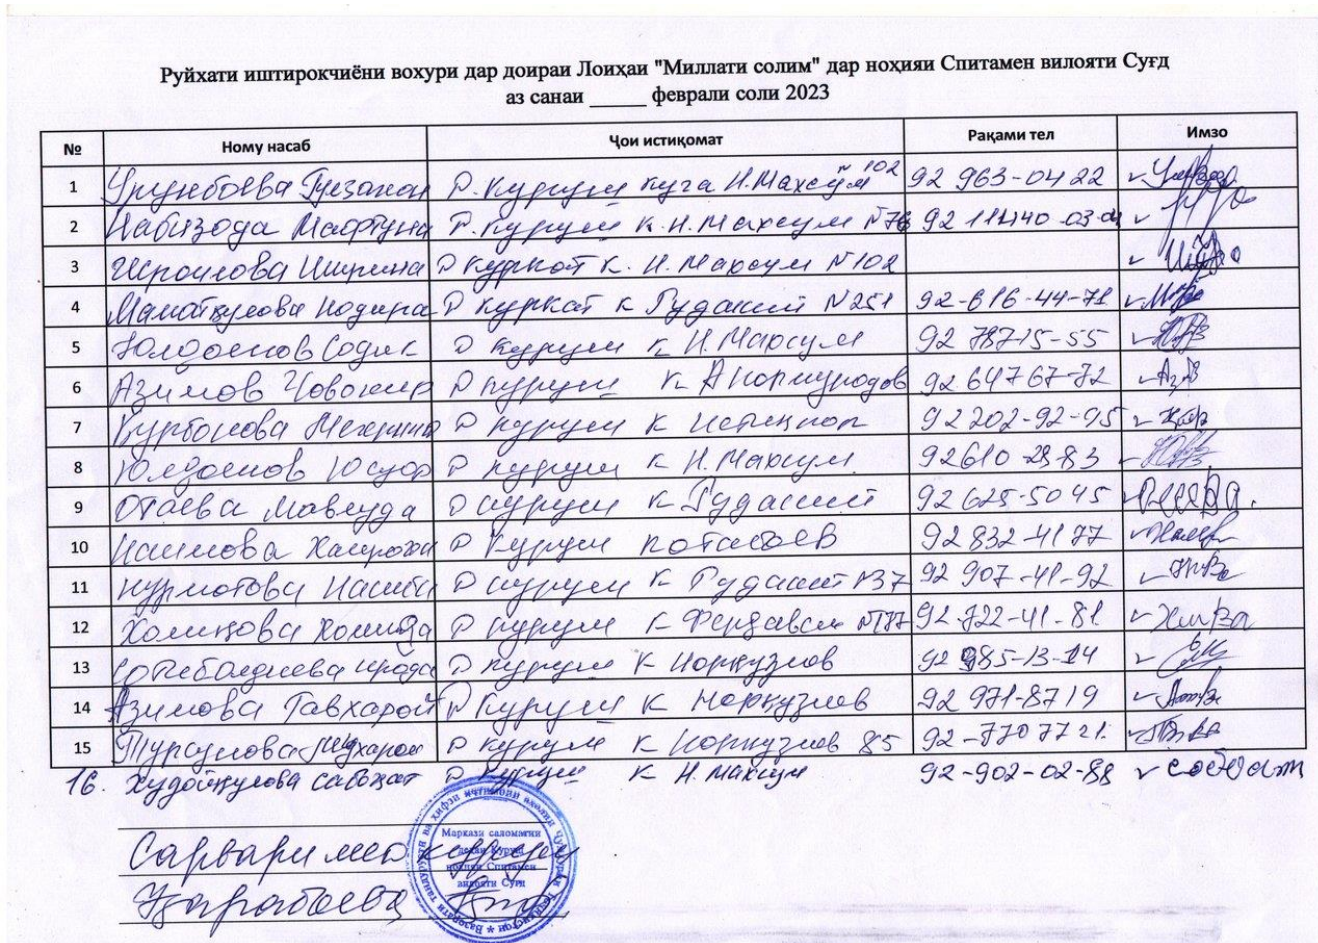 Руйхати иштирокчиёни вохури дар доираи Лоиҳаи "Миллати солим" дар ноҳияи Спитамен вилояти Суғд
аз санаи _____ феврали соли 2023
№ Ному насаб Ҷои истиқомат Рақами тел Имзо
1 Урунбоева Гулзахон Д. Куруш куча Н. Махсум №102 92 963-04 22
2 Набизода Мафтуна Д. Куруш к. Н. Махсум №76
3 Исроилова Ширина Д куркат к. Н. Махсум №102
4 Маматкулова Нодира Д куркат к Рудаки №251 92-616-44-71
5 Юлдошов Содик Д куруш к Н. Махсум 92 787 15-55
6 Азимов Ҷовохир Д куруш к А Нормуродов 92 647 67-72
7 Курбонова Мехрина Д куруш к Истиқлол 92 202-92-95
8 Юлдошов Юсуф Д куруш к Н. Махсум 92610-28-83
9 Отаева Мавлуда Д куруш к Рудаки 92 625-50 45
10 Наимова Д Куруш к 92 832-41 77
11 Нурматова Насиба Д куруш к Рудаки №37 92 907-41-92
12 Холикова Холида Д куруш к Фирдавси №177 92-722-41-81
13 ирода Д куруш к Норкузиев 92 985-13-14
14 Азимова Гавхарой Д Куруш к Норкузиев 92 971-87 19
15 Турсунова Д куруш к Норкузиев 85 92-770 77 21
16. Худойкулова сабохат Д куруш к Н. Махсум 92-902-02-88 сабохат
Сарвари мс куруш
Маркази саломатии
деҳаи Куруш
ноҳияи Спитамен
вилояти Суғд
Қаработева